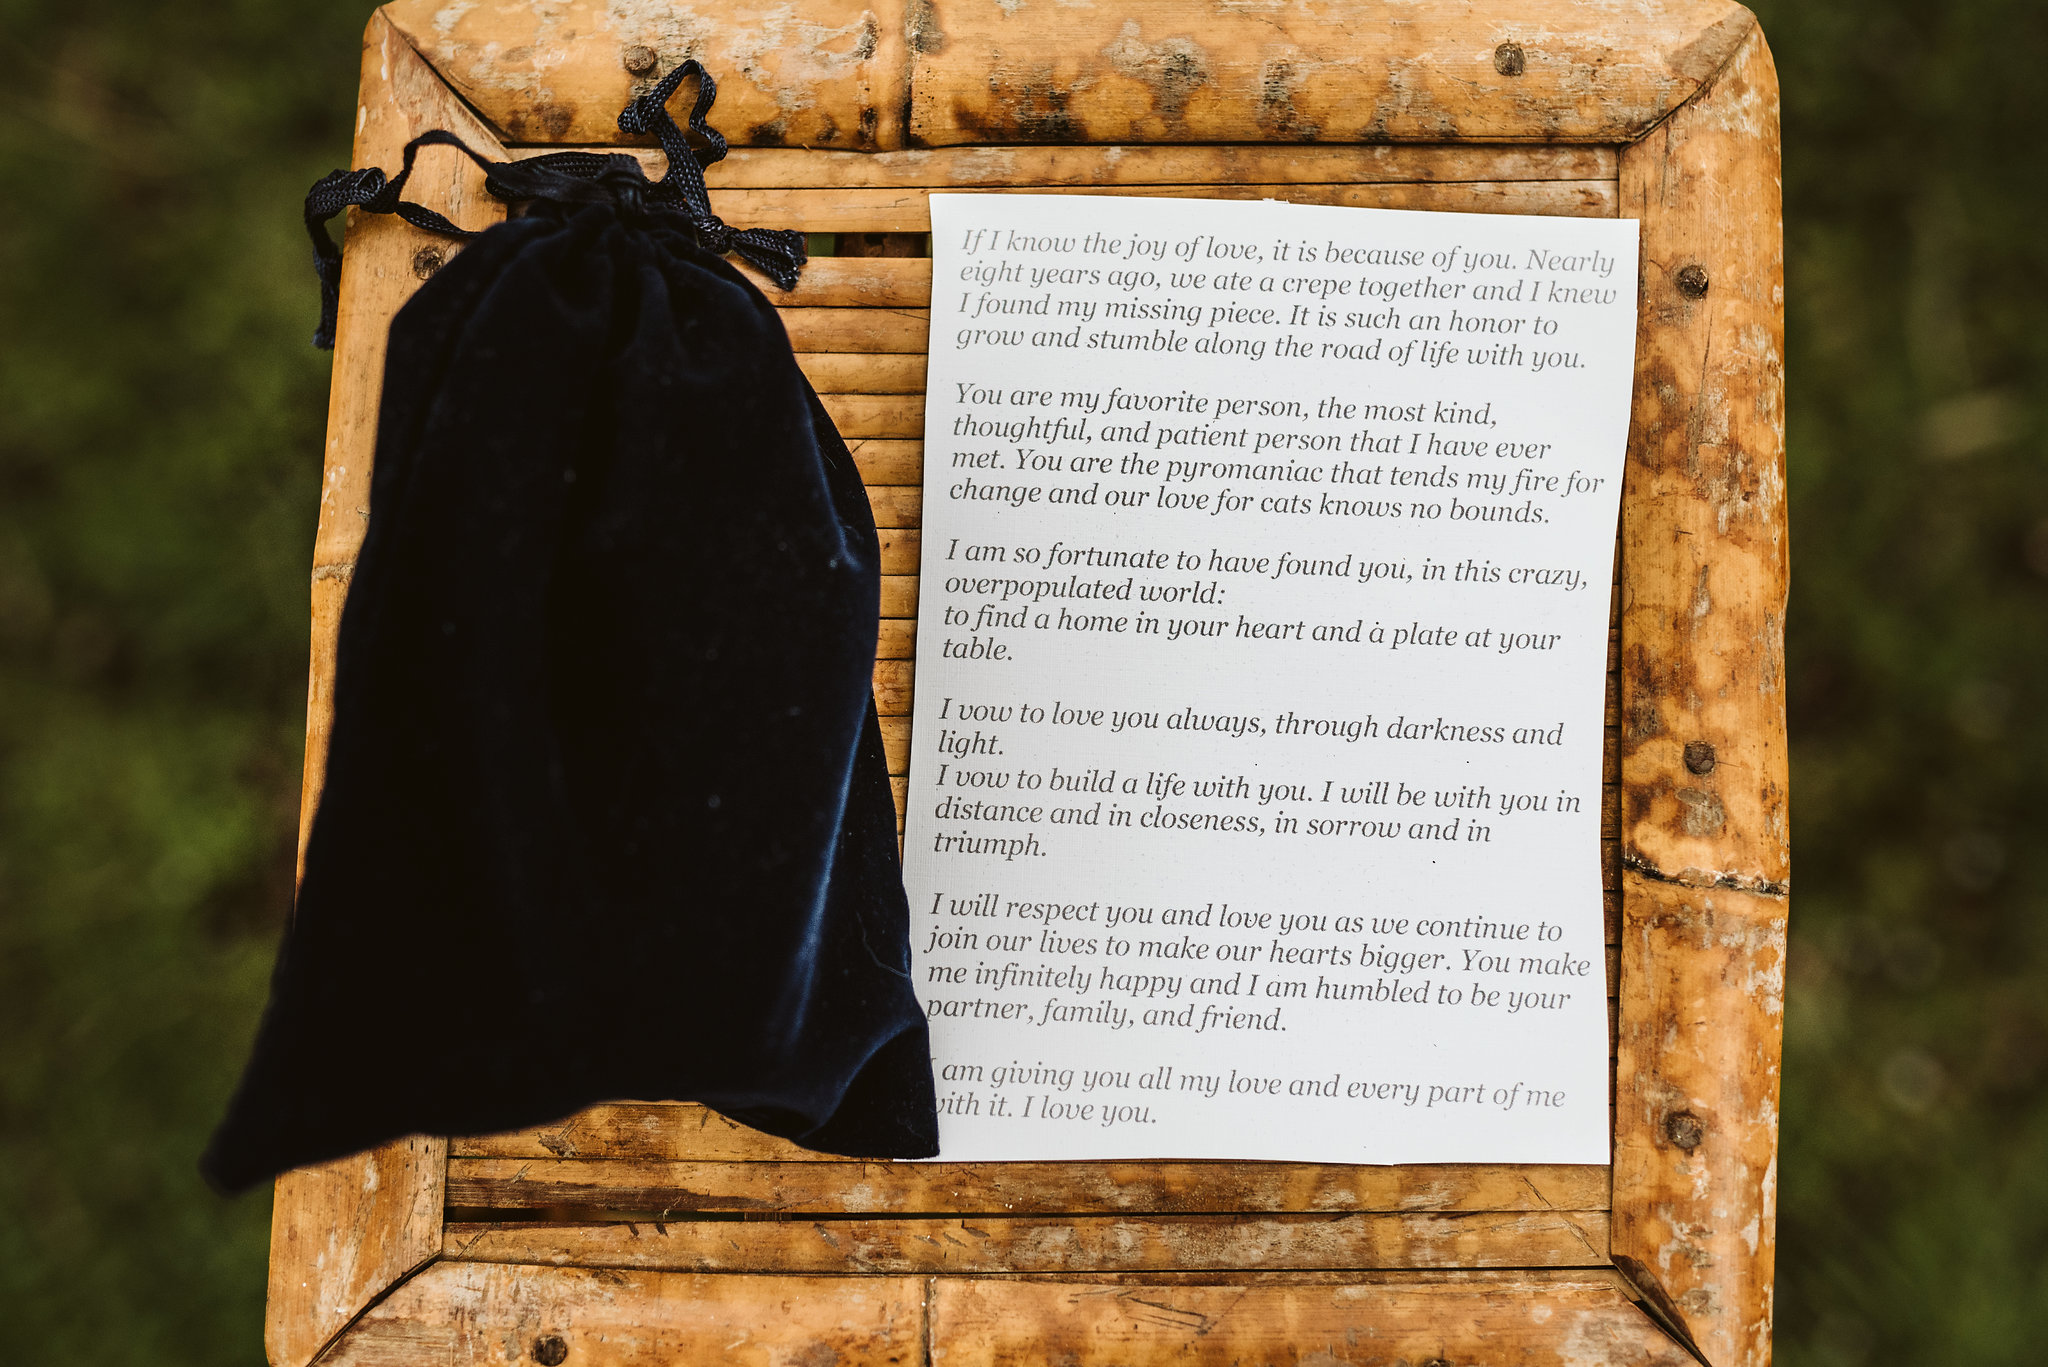 If I know the joy of love, it is because of you. Nearly
eight years ago, we ate a crepe together and I knew
I found my missing piece. It is such an honor to
grow and stumble along the road of life with you.
You are my favorite person, the most kind,
thoughtful, and patient person that I have ever
met. You are the pyromaniac that tends my fire for
change and our love for cats knows no bounds.
I am so fortunate to have found you, in this crazy,
overpopulated world:
to find a home in your heart and a plate at your
table.
I vow to love you always, through darkness and
light.
I vow to build a life with you. I will be with you in
distance and in closeness, in sorrow and in
triumph.
I will respect you and love you as we continue to
join our lives to make our hearts bigger. You make
me infinitely happy and I am humbled to be your
partner, family, and friend.
I am giving you all my love and every part of me
with it. I love you.